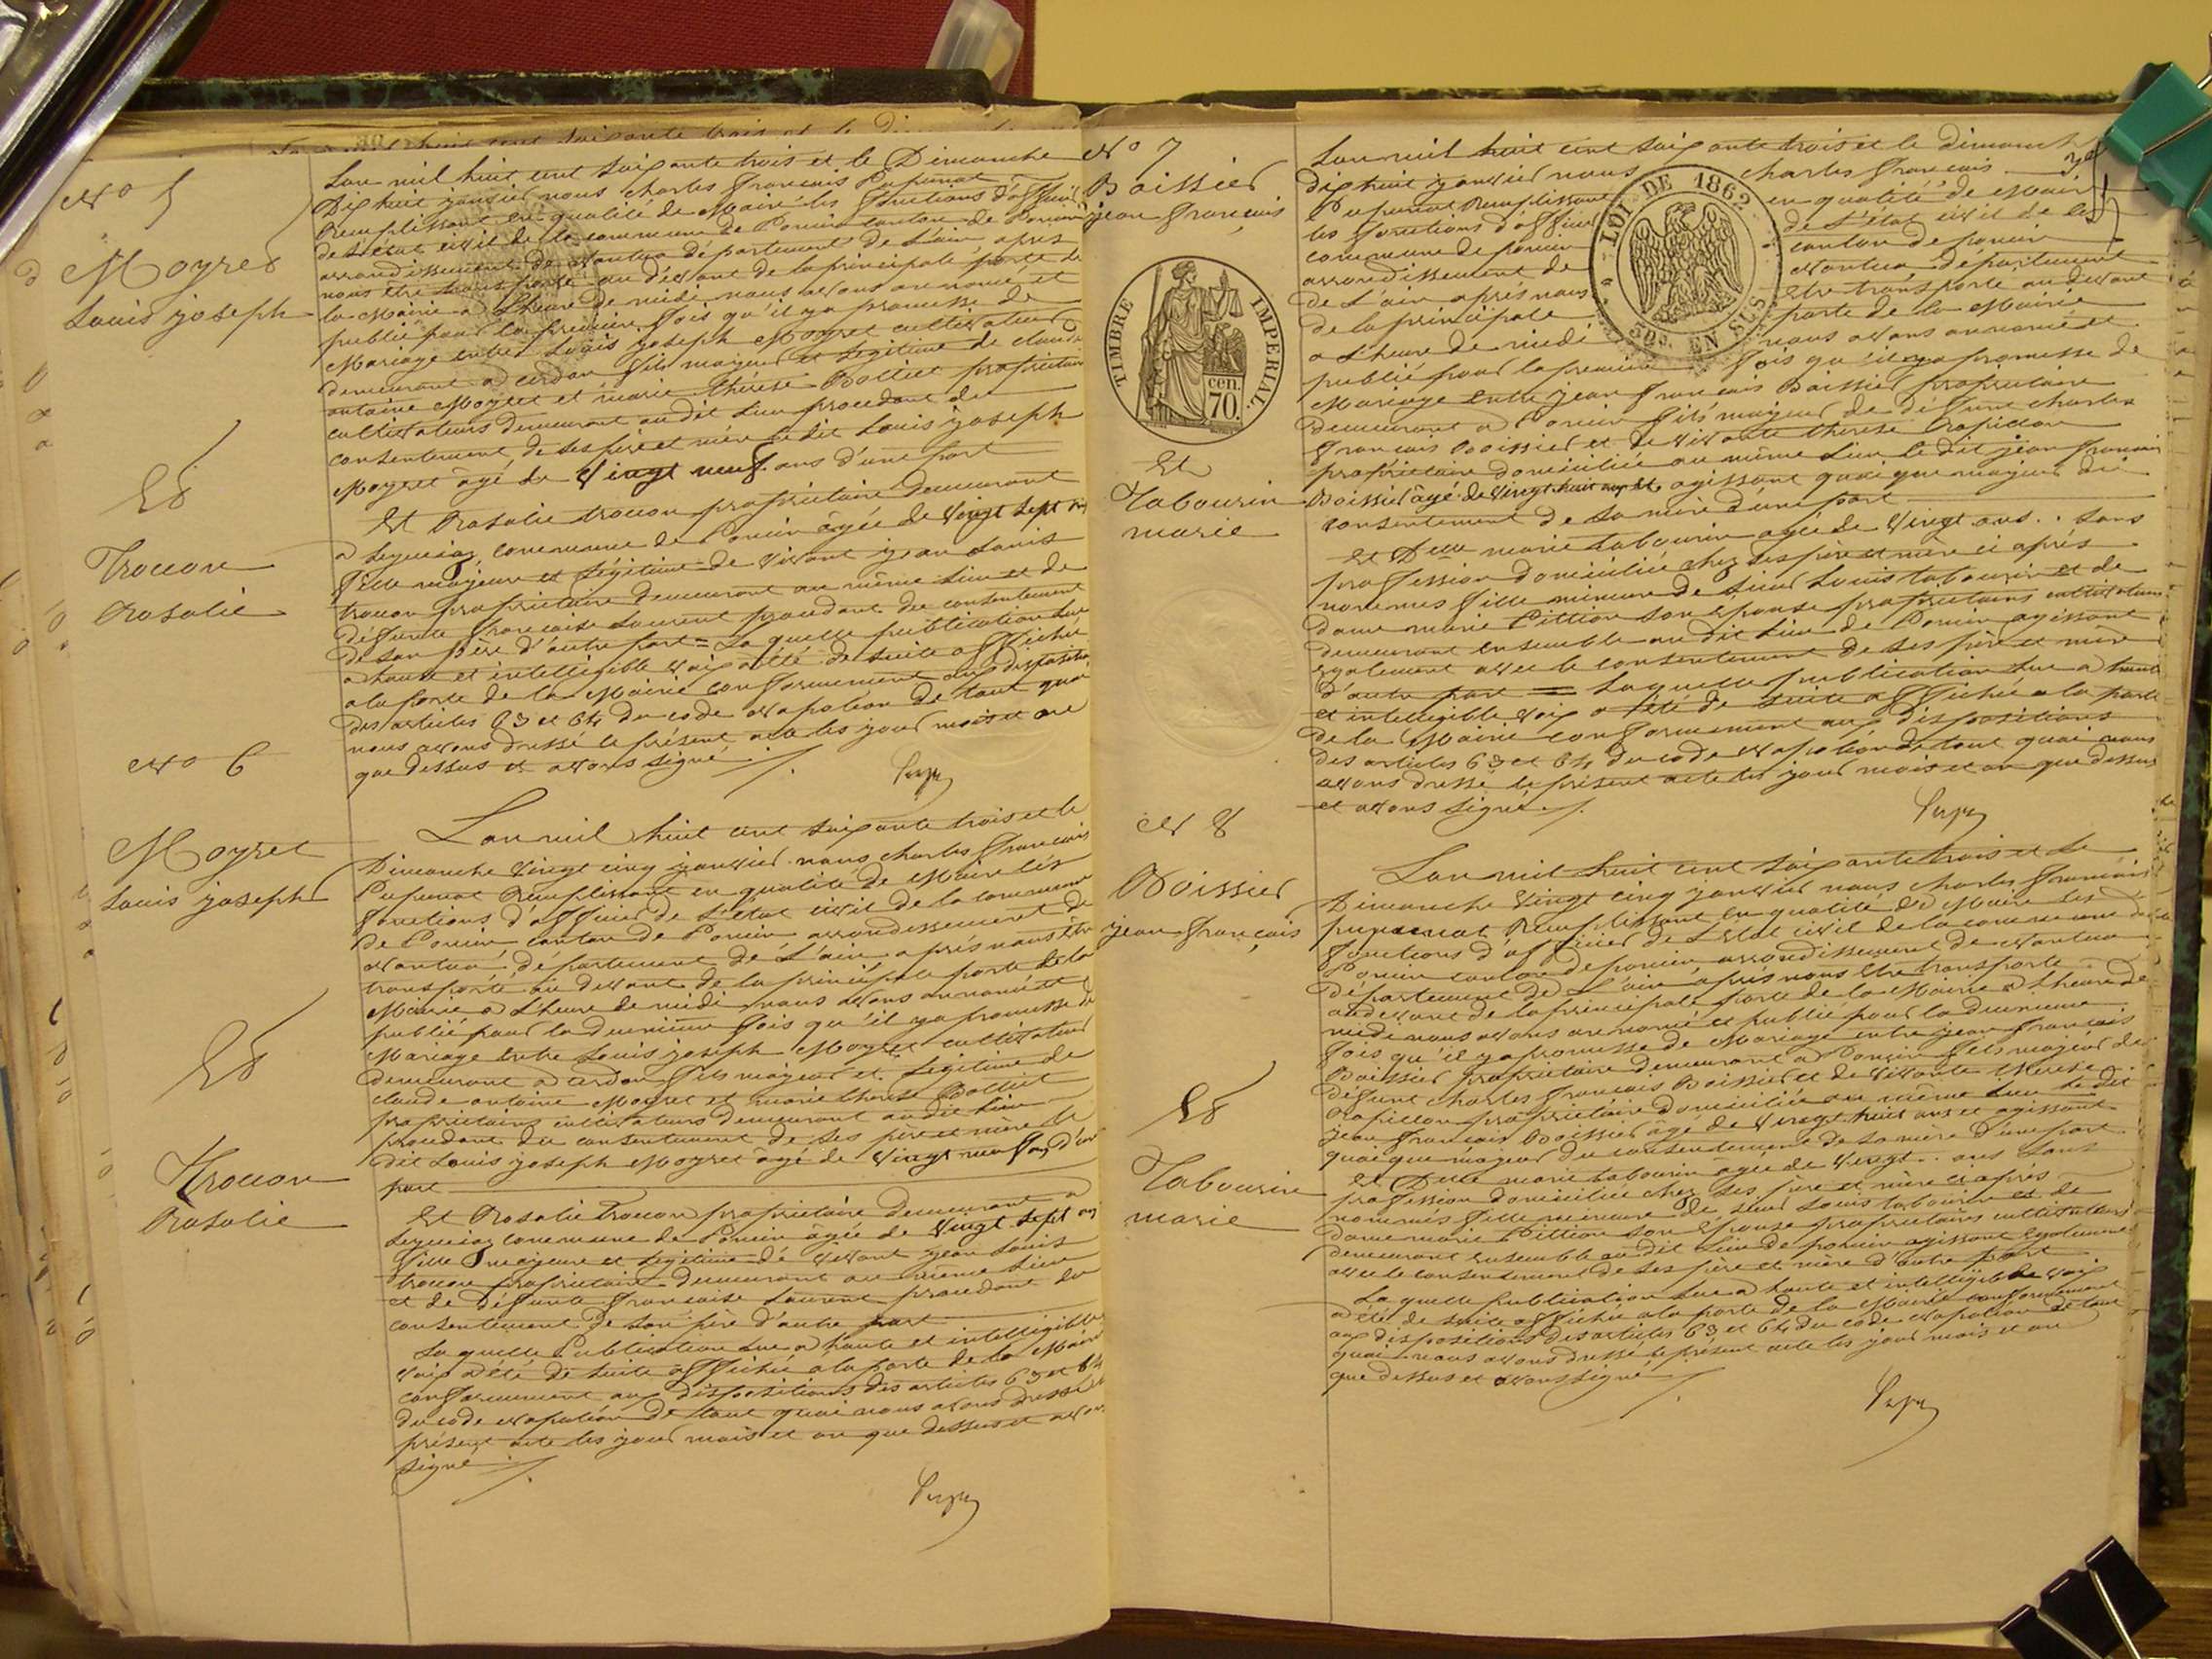 N° 5
Moyret
Louis joseph
Et
Trocon
Rosalie
L'an mil huit cent soixante trois et le Dimanche
Dix huit janvier nous charles françois
Remplissant en qualité de Maire les fonctions d'officier
de l'état civil de la commune de Poncin canton de Poncin
arrondissement de Nantua département de l'ain, après
nous être transporté au devant de la principale porte de
la Mairie a l'heure de midi nous avons annoncé et
publié pour la première fois qu'il y a promesse de
Mariage entre Louis joseph Moyret cultivateur
demeurant a cerdon fils majeur et légitime de claude
antoine Moyret et marie thérèse Bolliet propriétaires
cultivateurs demeurant audit lieu procedant du
consentement de ses père et mère le dit Louis joseph
Moyret âgé de vingt neuf ans d'une part
Et Rosalie trocon propriétaire demeurant
a commune de Poncin âgée de vingt sept ans
fille majeure et légitime de vivant jean Louis
trocon propriétaire demeurant au même lieu et de
défunte françoise Laurent procedant du consentement
de son père d'autre part = La quelle publication lue
a haute et intelligible voix a été de suite affichée
a la porte de la Mairie conformement aux dispositions
des articles 63 et 64 du code Napoléon de tout quoi
nous avons dressé le présent acte les jour mois et an
que dessus et avons signé
N° 6
Moyret
Louis joseph
Et
Trocon
Rosalie
L'an mil huit cent soixante trois et le
Dimanche vingt cinq janvier nous charles françois
Remplissant en qualité de Maire les
fonctions d'officier de l'état civil de la commune
de Poncin canton de Poncin arrondissement de
Nantua, département de l'ain après nous être
transporté au devant de la principale porte de la
Mairie a l'heure de midi nous avons annoncé et
publié pour la deuxième fois qu'il y a promesse de
Mariage entre Louis joseph Moyret cultivateur
demeurant a cerdon fils majeur et légitime de
claude antoine Moyret et marie thérèse Bolliet
propriétaires cultivateurs demeurant audit lieu
procedant du consentement de ses père et mère le
dit Louis joseph Moyret âgé de vingt neuf ans d'une
part
Et Rosalie Trocon propriétaire demeurant a
commune de Poncin âgée de vingt sept ans
fille majeure et légitime de vivant jean Louis
trocon propriétaire demeurant au même lieu
et de défunte françoise Laurent procedant du
consentement de son père d'autre part
La quelle Publication lue a haute et intelligible
voix a été de suite affichée a la porte de la Mairie
conformement aux dispositions des articles 63 et 64
du code Napoléon de tout quoi nous avons dressé le
présent acte les jour mois et an que dessus et avons
signé
N° 7
Boissier
jean françois
TIMBRE IMPERIAL
70 cen.
Et
Tabourin
marie
LOI DE 1862
50c. EN SUS
L'an mil huit cent soixante trois et le dimanche
dix huit janvier nous charles françois
Remplissant en qualité de Maire
les fonctions d'officier de l'état civil de la
commune de poncin canton de poncin
arrondissement de Nantua département
de l'ain après nous être transporté au devant
de la principale porte de la Mairie
a l'heure de midi nous avons annoncé et
publié pour la première fois qu'il y a promesse de
Mariage entre jean françois Boissier propriétaire
demeurant a Poncin fils majeur de défunt charles
françois Boissier et de vivante thérèse
propriétaire domiciliée au même lieu le dit jean françois
Boissier âgé de vingt huit ans et agissant quoique majeur du
consentement de sa mère d'une part
Et Delle marie tabourin agée de vingt ans . sans
profession domiciliée chez ses père et mère ci après
nommés fille mineure de sieur Louis tabourin et de
dame marie Pittion son épouse propriétaires cultivateurs
demeurant ensemble au dit lieu de Poncin agissant
egalement avec le consentement de ses père et mère
d'autre part = Laquelle publication lue a haute
et intelligible voix a été de suite affichée a la porte
de la Mairie conformement aux dispositions
des articles 63 et 64 du code Napoléon de tout quoi nous
avons dressé le présent acte les jour mois et an que dessus
et avons signé
N° 8
Boissier
jean françois
Et
Tabourin
marie
L'an mil huit cent soixante trois et le
Dimanche vingt cinq janvier nous charles françois
Remplissant en qualité de Maire les
fonctions d'officier de l'état civil de la commune de
Poncin canton de poncin, arrondissement de Nantua
département de l'ain après nous être transporté
au devant de la principale porte de la Mairie a l'heure de
midi nous avons annoncé et publié pour la deuxième
fois qu'il y a promesse de Mariage entre jean françois
Boissier propriétaire demeurant a Poncin fils majeur de
défunt charles françois Boissier et de vivante thérèse
propriétaire domiciliée au même lieu le dit
jean françois Boissier âgé de vingt huit ans et agissant
quoique majeur du consentement de sa mère d'une part
Et Delle marie tabourin agée de vingt . ans sans
profession domiciliée chez ses père et mère ci après
nommés fille mineure de sieur Louis tabourin et de
dame marie Pittion son épouse propriétaires cultivateurs
demeurant ensemble au dit lieu de poncin agissant egalement
avec le consentement de ses père et mère d'autre part
La quelle Publication lue a haute et intelligible voix
a été de suite affichée a la porte de la Mairie conformement
aux dispositions des articles 63 et 64 du code Napoléon de tout
quoi nous avons dressé le présent acte les jour mois et an
que dessus et avons signé